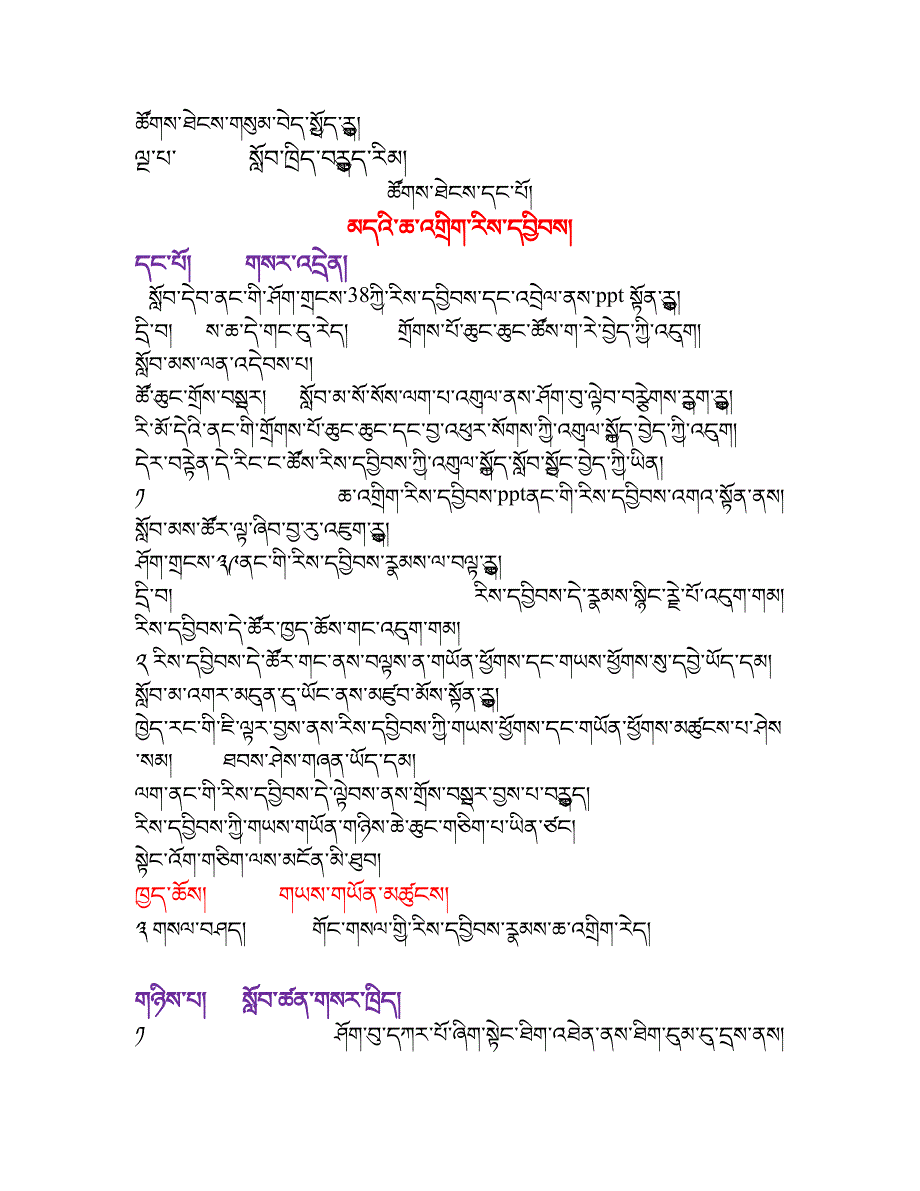 ཚོགས་ཐེངས་གསུམ་བེད་སྤྱོད་རྒྱུ།
ལྔ་པ་ སློབ་ཁྲིད་བརྒྱུད་རིམ།
ཚོགས་ཐེངས་དང་པོ།
མདའི་ཆ་འགྲིག་རིས་དབྱིབས།
དང་པོ། གསར་འདྲེན།
སློབ་དེབ་ནང་གི་ཤོག་གྲངས་38ཀྱི་རིས་དབྱིབས་དང་འབྲེལ་ནས་ppt སྟོན་རྒྱུ།
དྲི་བ། ས་ཆ་དེ་གང་དུ་རེད། གྲོགས་པོ་ཆུང་ཆུང་ཚོས་ག་རེ་བྱེད་ཀྱི་འདུག།
སློབ་མས་ལན་འདེབས་པ།
ཚོ་ཆུང་གྲོས་བསྡུར། སློབ་མ་སོ་སོས་ལག་པ་འགུལ་ནས་ཤོག་བུ་ལྟེབ་བརྩེགས་རྒྱག་རྒྱུ།
རི་མོ་དེའི་ནང་གི་གྲོགས་པོ་ཆུང་ཆུང་དང་བྱ་འཕུར་སོགས་ཀྱི་འགུལ་སྐྱོད་བྱེད་ཀྱི་འདུག།
དེར་བརྟེན་དེ་རིང་ང་ཚོས་རིས་དབྱིབས་ཀྱི་འགུལ་སྐྱོད་སློབ་སྦྱོང་བྱེད་ཀྱི་ཡིན།
༡ ཆ་འགྲིག་རིས་དབྱིབས་pptནང་གི་རིས་དབྱིབས་འགའ་སྟོན་ནས།
སློབ་མས་ཚོར་ལྟ་ཞིབ་བྱ་རུ་འཇུག་རྒྱུ།
ཤོག་གྲངས་༣༩ནང་གི་རིས་དབྱིབས་རྣམས་ལ་བལྟ་རྒྱུ།
དྲི་བ། རིས་དབྱིབས་དེ་རྣམས་སྙིང་རྗེ་པོ་འདུག་གམ།
རིས་དབྱིབས་དེ་ཚོར་ཁྱད་ཆོས་གང་འདུག་གམ།
༢ རིས་དབྱིབས་དེ་ཚོར་གང་ནས་བལྟས་ན་གཡོན་ཕྱོགས་དང་གཡས་ཕྱོགས་སུ་དབྱེ་ཡོད་དམ།
སློབ་མ་འགར་མདུན་དུ་ཡོང་ནས་མཛུབ་མོས་སྟོན་རྒྱུ།
ཁྱེད་རང་གི་ཇི་ལྟར་བྱས་ནས་རིས་དབྱིབས་ཀྱི་གཡས་ཕྱོགས་དང་གཡོན་ཕྱོགས་མཚུངས་པ་ཤེས
་སམ། ཐབས་ཤེས་གཞན་ཡོད་དམ།
ལག་ནང་གི་རིས་དབྱིབས་དེ་ལྟེབས་ནས་གྲོས་བསྡུར་བྱས་པ་བརྒྱུད།
རིས་དབྱིབས་ཀྱི་གཡས་གཡོན་གཉིས་ཆེ་ཆུང་གཅིག་པ་ཡིན་ཙང།
སྟེང་འོག་གཅིག་ལས་མངོན་མི་ཐུབ།
ཁྱད་ཆོས། གཡས་གཡོན་མཚུངས།
༣ གསལ་བཤད། གོང་གསལ་གྱི་རིས་དབྱིབས་རྣམས་ཆ་འགྲིག་རེད།
གཉིས་པ། སློབ་ཚན་གསར་ཁྲིད།
༡ ཤོག་བུ་དཀར་པོ་ཞིག་སྟེང་ཐིག་འཐེན་ནས་ཐིག་དུམ་དུ་དྲས་ནས།